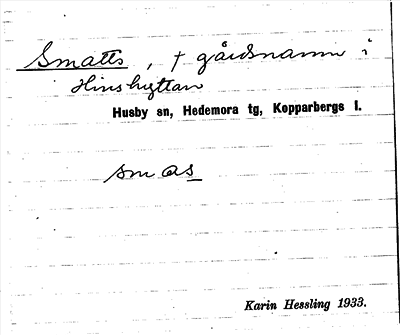 Smatts, † gårdsnamn i
Hinshyttan
Husby sn, Hedemora tg, Kopparbergs l.
smas
Karin Hessling 1933.